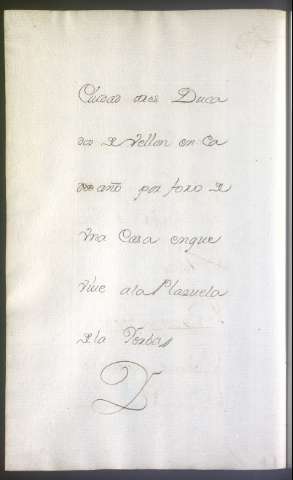 Ciudad tres Duca
dos de Vellon en Ca
da año por foro de
vna Casa enque
vive ala Plazuela
de la Yerba